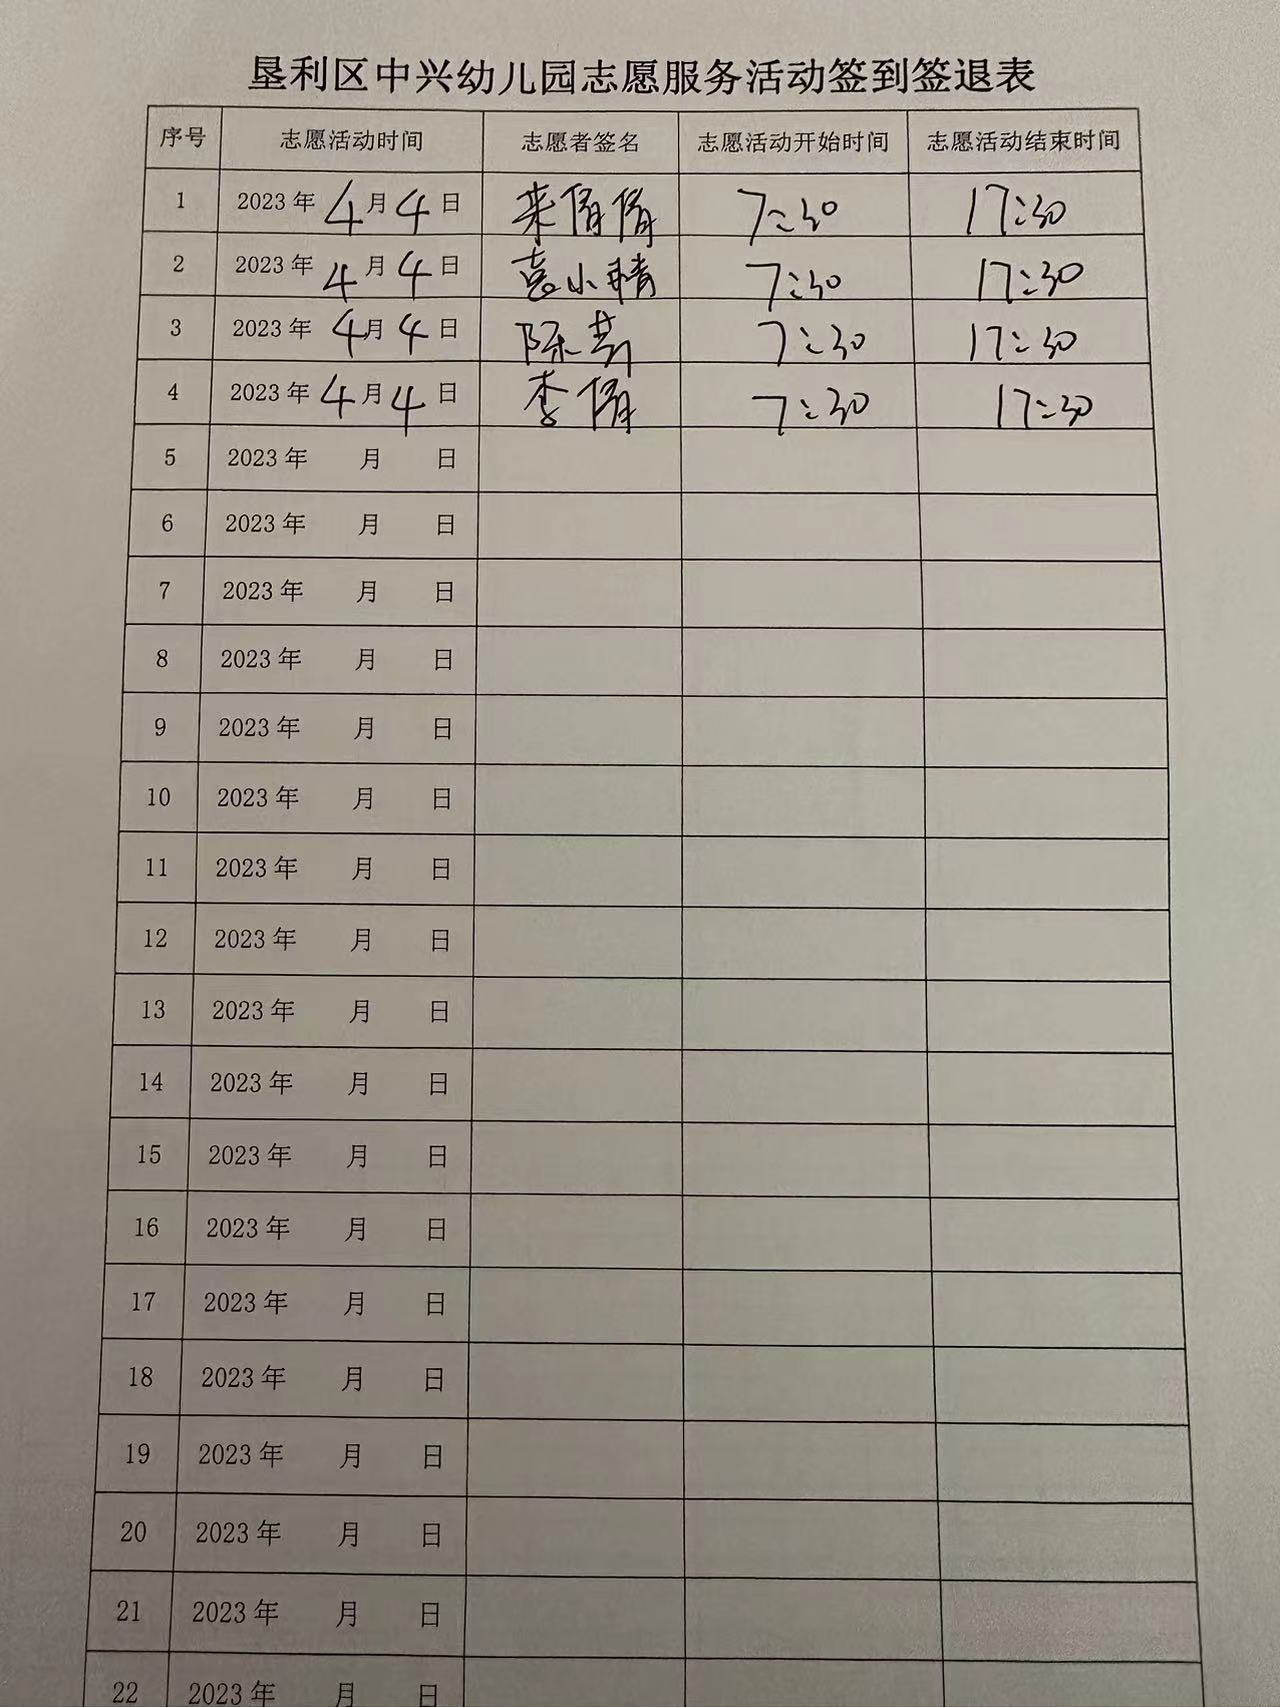 垦利区中兴幼儿园志愿服务活动签到签退表
序号 志愿活动时间 志愿者签名 志愿活动开始时间 志愿活动结束时间
1 2023年4月4日 来倩倩 7:30 17:30
2 2023年4月4日 袁小晴 7:30 17:30
3 2023年4月4日 陈 7:30 17:30
4 2023年4月4日 李倩 7:30 17:30
5 2023年 月 日
6 2023年 月 日
7 2023年 月 日
8 2023年 月 日
9 2023年 月 日
10 2023年 月 日
11 2023年 月 日
12 2023年 月 日
13 2023年 月 日
14 2023年 月 日
15 2023年 月 日
16 2023年 月 日
17 2023年 月 日
18 2023年 月 日
19 2023年 月 日
20 2023年 月 日
21 2023年 月 日
22 2023年 月 日